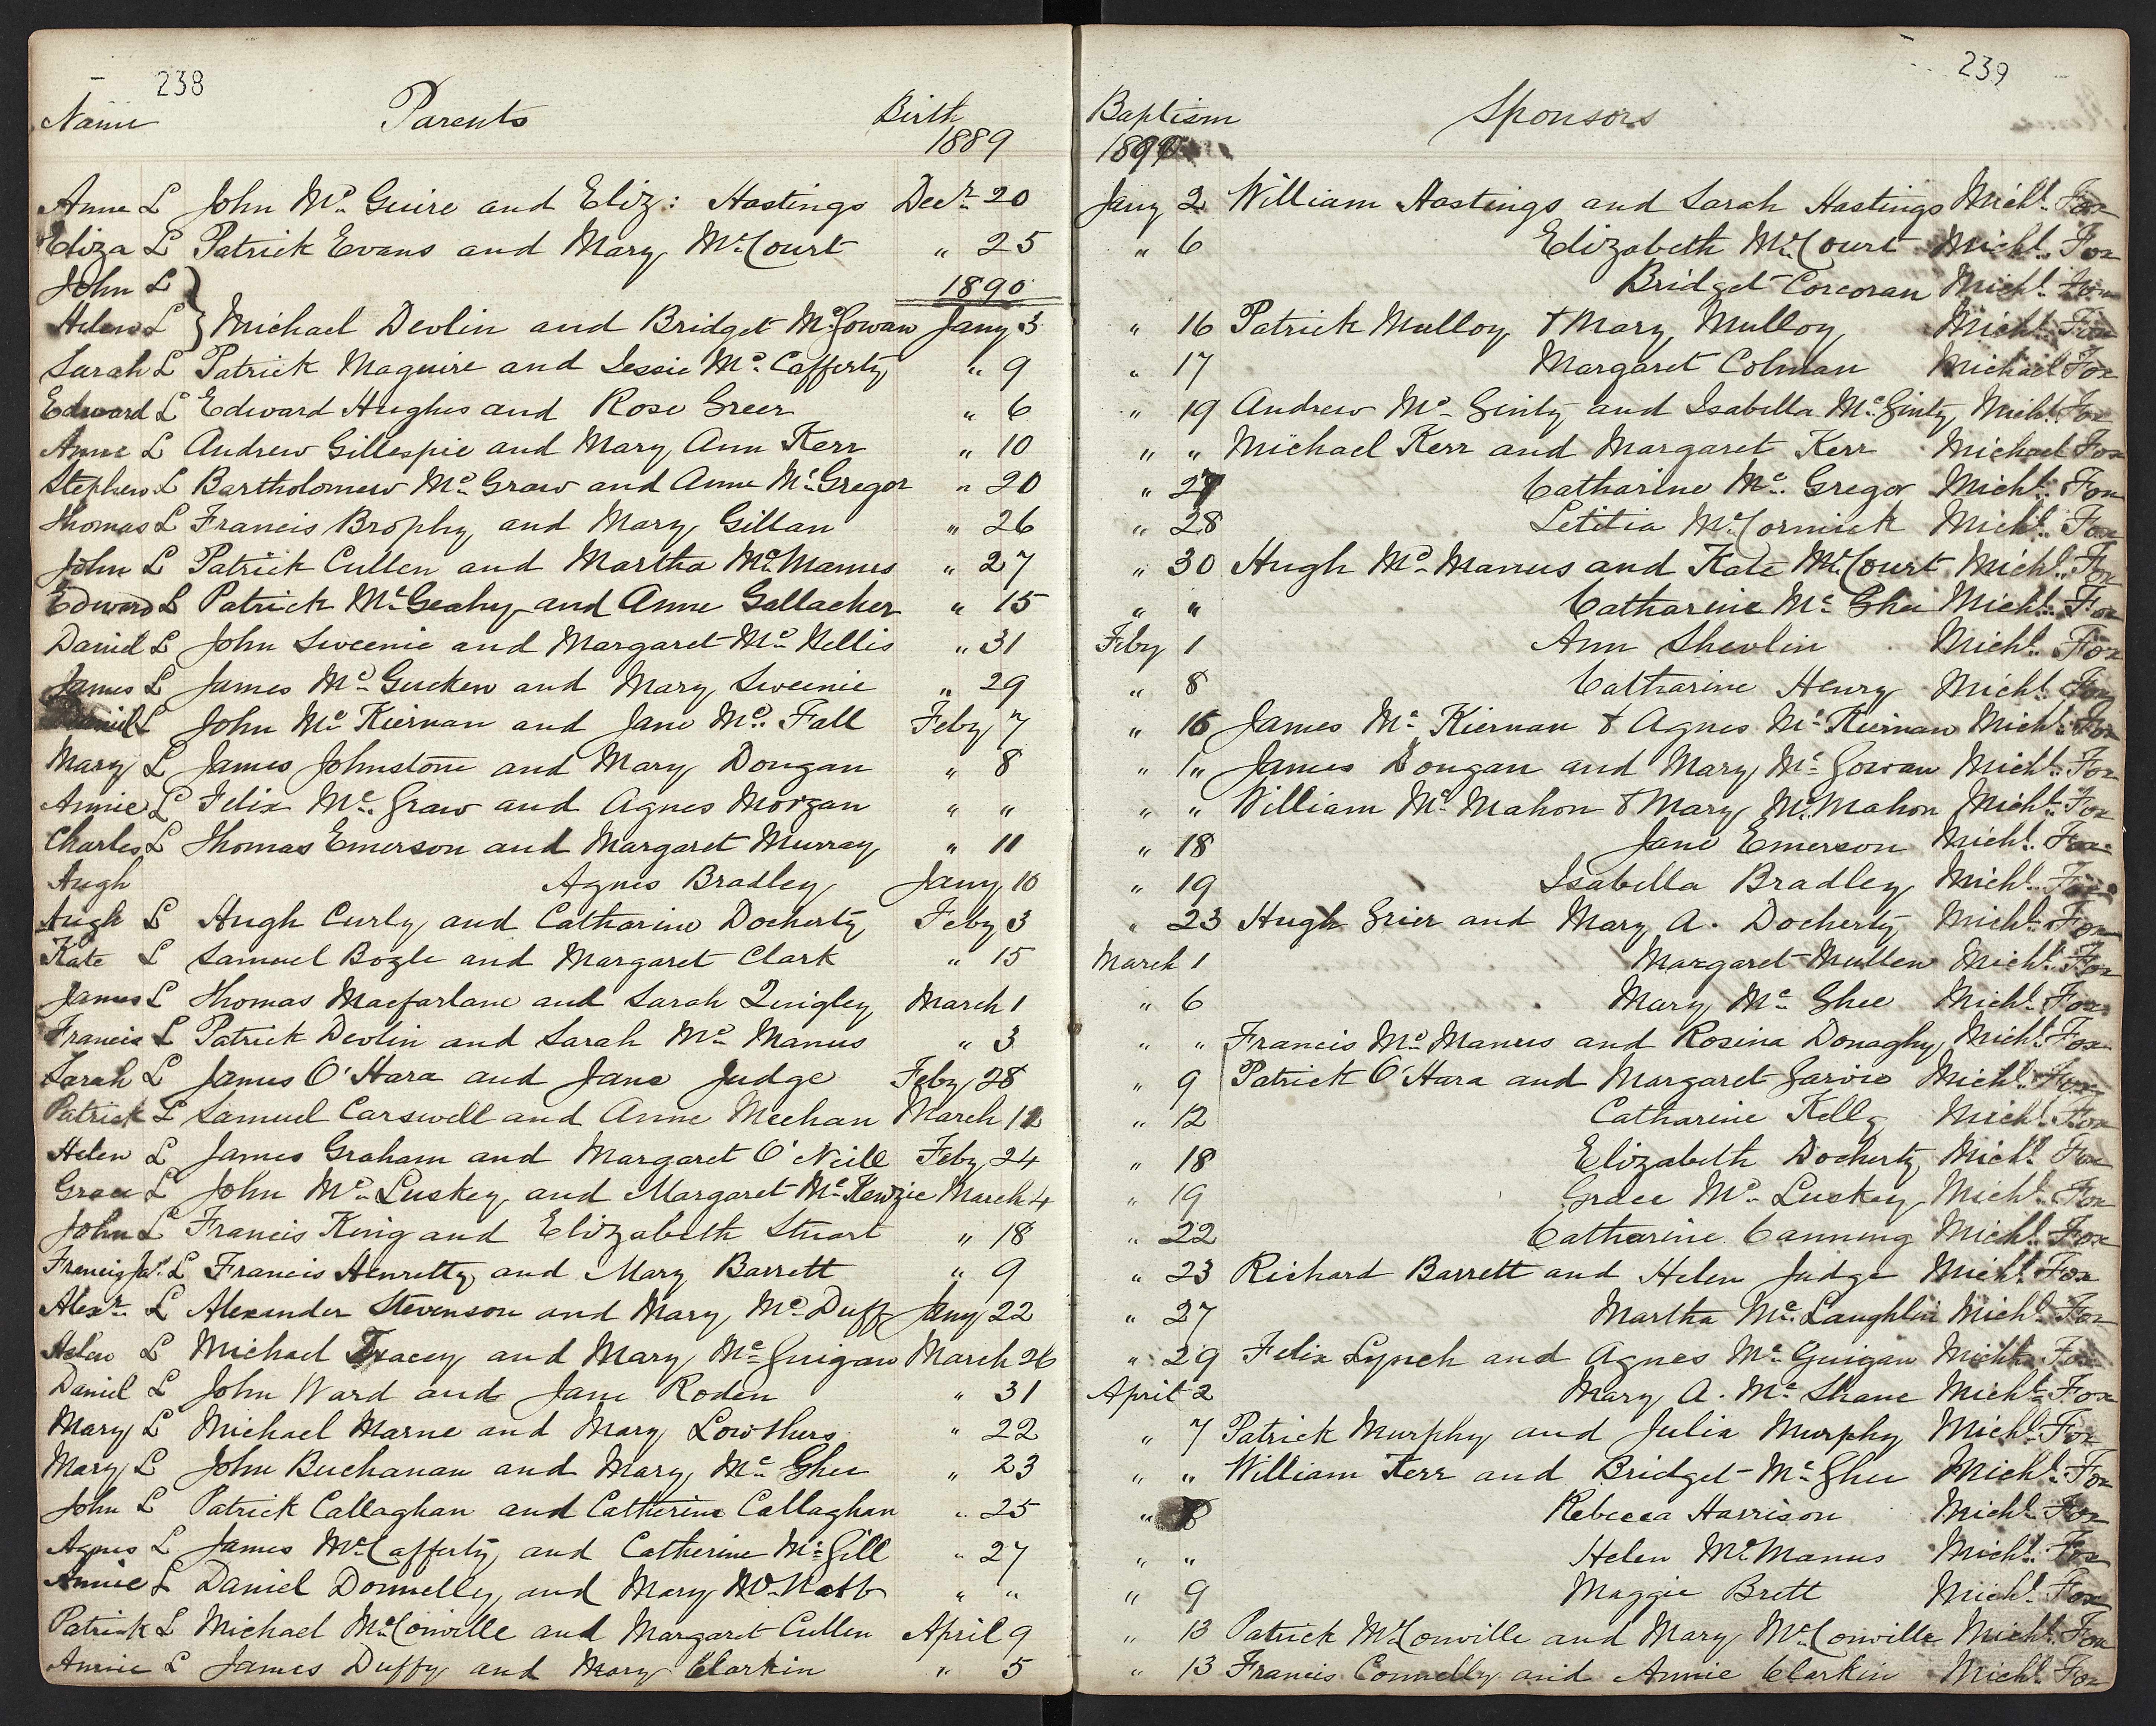 238
Name Parents Birth
1889
Anne L John Mc Guire and Eliz: Hastings Decr 20
Eliza L Patrick Evans and Mary McCourt " 25
John L 1890
Helen L } Michael Devlin and Bridget McGowan Jany 3
Sarah L Patrick Maguire and Jessie Mc Cafferty " 9
Edward L Edward Hughes and Rose Greer " 6
Anne L Andrew Gillespie and Mary Ann Kerr " 10
Stephen L Bartholomew Mc Graw and Anne McGregor " 20
Thomas L Francis Brophy and Mary Gillan " 26
John L Patrick Cullen and Martha McManus " 27
Edward L Patrick McGeahy and Anne Gallacher " 15
Daniel L John Sweenie and Margaret Mc Nellis " 31
James L James Mc Gucken and Mary Sweenie " 29
Daniel L John Mc Kiernan and Jane Mc Fall Feby 7
Mary L James Johnstone and Mary Dougan " 8
Annie L Felix Mc Graw and Agnes Morgan " "
Charles L Thomas Emerson and Margaret Murray " 11
Hugh Agnes Bradley Jany 10
Hugh L Hugh Curly and Catharine Docherty Feby 3
Kate L Samuel Bogle and Margaret Clark " 15
James L Thomas Macfarlane and Sarah Quigley March 1
Francis L Patrick Devlin and Sarah Mc Manus " 3
Sarah L James O'Hara and Jane Judge Feby 28
Patrick L Samuel Carswell and Anne Meehan March
Helen L James Graham and Margaret O'Neill Feby 24
Grace L John Mc Luskey and Margaret McKenzie March 4
John L Francis King and Elizabeth Stuart " 18
Francis Jas. L Francis Henretty and Mary Barrett " 9
Alexr. L Alexander Stevenson and Mary Mc Duff Jany 22
Helen L Michael Tracey and Mary Mc Guigan March 26
Daniel L John Ward and Jane Roden " 31
Mary L Michael Marne and Mary Lowthers " 22
Mary L John Buchanan and Mary Mc Ghee " 23
John L Patrick Callaghan and Catherine Callaghan " 25
Agnes L James McCafferty and Catherine McGill " 27
Annie L Daniel Donnelly and Mary McNabb " "
Patrick L Michael McConville and Margaret Cullen April 9
Annie L James Duffy and Mary Clarkin " 5
239
Baptism Sponsors
1890
Jany 2 William Hastings and Sarah Hastings Michl. Fox
" 6 Elizabeth McCourt Michl. Fox
Bridget Corcoran Michl. Fox
" 16 Patrick Mulloy & Mary Mulloy Michl. Fox
" 17 Margaret Colman Michael Fox
" 19 Andrew Mc Ginty and Isabella McGinty Michl. Fox
" " Michael Kerr and Margaret Kerr Michael Fox
" 27 Catharine Mc Gregor Michl. Fox
" 28 Letitia McCormick Michl. Fox
" 30 Hugh Mc Manus and Kate McCourt Michl. Fox
" " Catharine Mc Ghee Michl. Fox
Feby 1 Ann Shevlin Michl. Fox
" 8 Catharine Henry Michl. Fox
" 16 James Mc Kiernan & Agnes Mc Kiernan Michl. Fox
" " James Dougan and Mary Mc Gowan Michl. Fox
" " William Mc Mahon & Mary McMahon Michl. Fox
" 18 Jane Emerson Michl. Fox
" 19 Isabella Bradley Michl. Fox
" 23 Hugh Grier and Mary A. Docherty Michl. Fox
March 1 Margaret Mullen Michl. Fox
" 6 Mary Mc Ghee Michl. Fox
" " Francis Mc Manus and Rosina Donaghy Michl. Fox
" 9 Patrick O'Hara and Margaret Garvie Michl. Fox
" 12 Catharine Kelly Michl. Fox
" 18 Elizabeth Docherty Michl. Fox
" 19 Grace Mc Luskey Michl. Fox
" 22 Catharine Canning Michl. Fox
" 23 Richard Barrett and Helen Judge Michl. Fox
" 27 Martha McLaughlin Michl. Fox
" 29 Felix Lynch and Agnes McGuigan Michl. Fox
April 2 Mary A. Mc Shane Michl. Fox
" 7 Patrick Murphy and Julia Murphy Michl. Fox
" " William Kerr and Bridget McGhee Michl. Fox
" 8 Rebecca Harrison Michl. Fox
" " Helen McManus Michl. Fox
" 9 Maggie Brett Michl. Fox
" 13 Patrick McConville and Mary McConville Michl. Fox
" 13 Francis Connelly and Annie Clarkin Michl. Fox